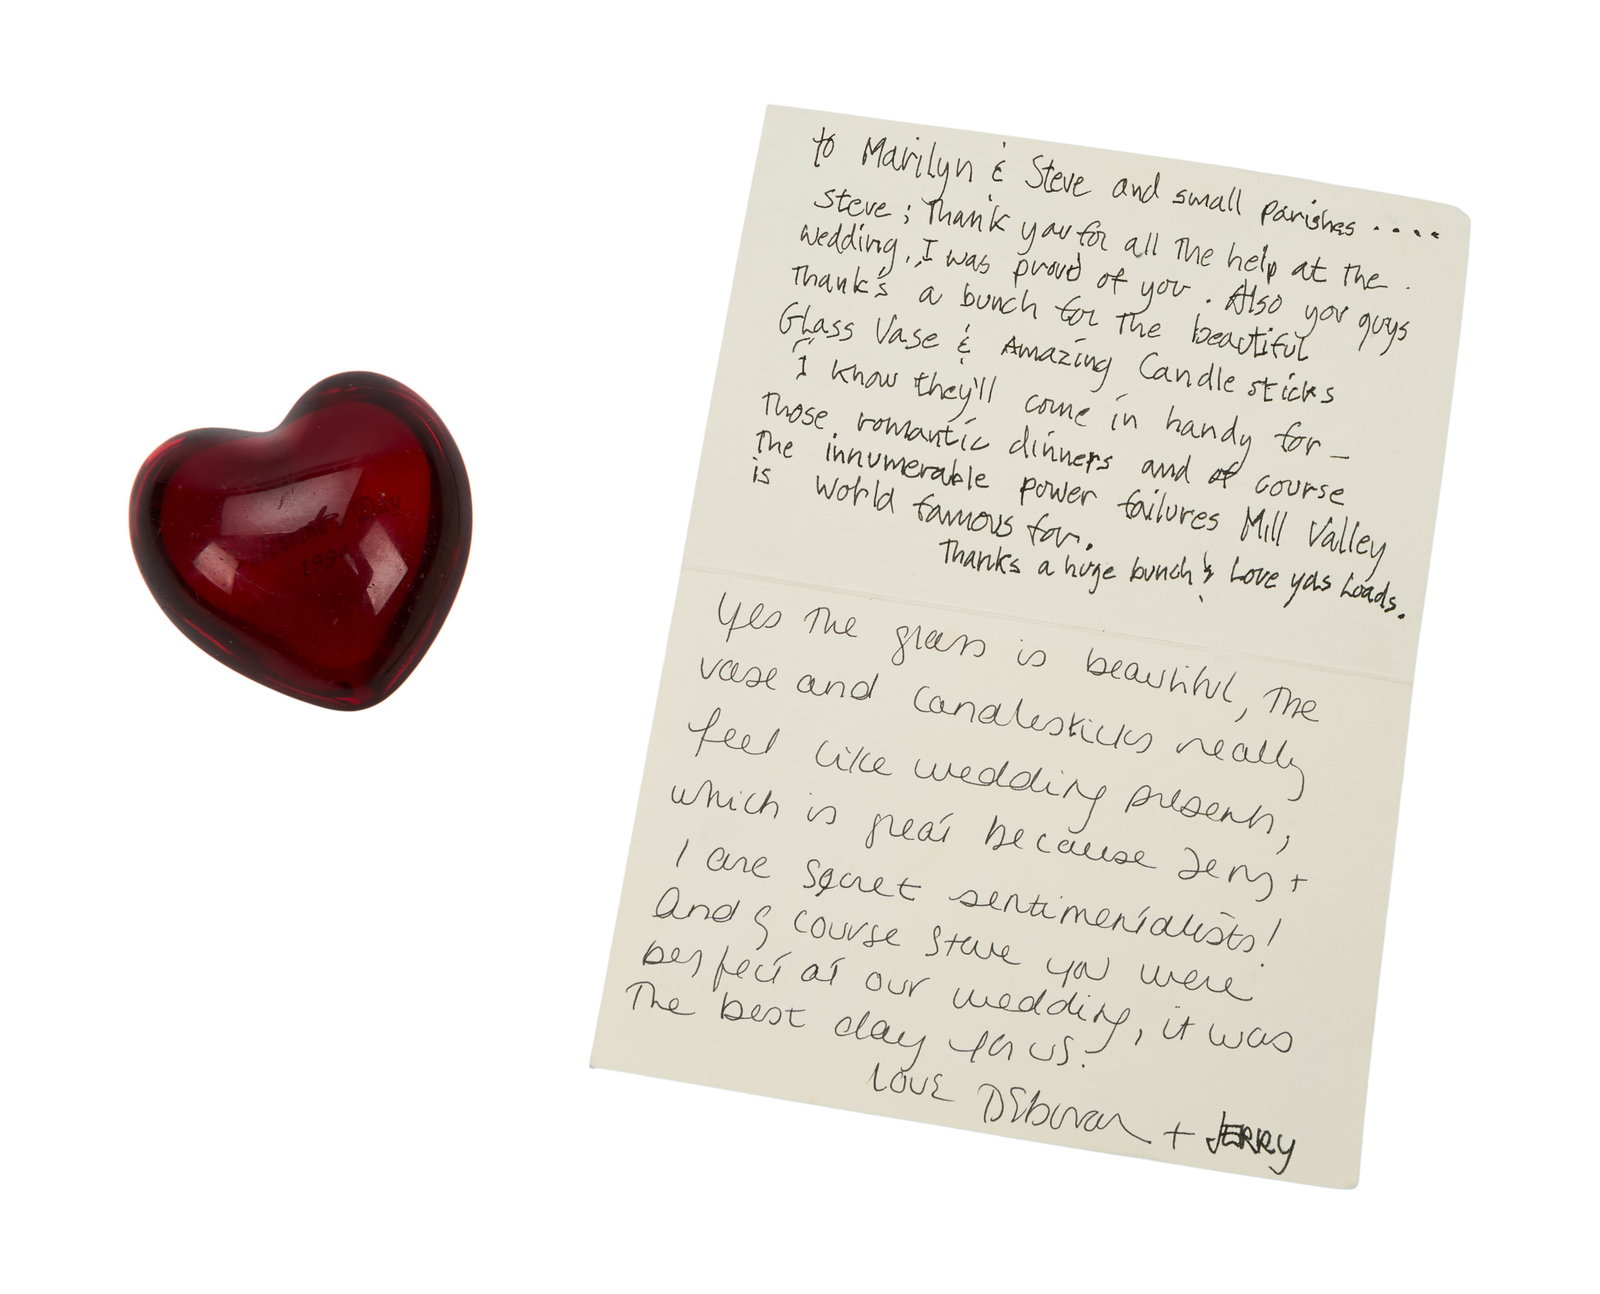 to Marilyn & Steve and small parishes ....
Steve; Thank you for all The help at the
wedding, I was proud of you. Also you guys
Thank's a bunch for The beautiful
Glass Vase & Amazing Candle sticks
I know they'll come in handy for_
Those romantic dinners and of course
The innumerable power failures Mill Valley
is world famous for.
Thanks a huge bunch & Love yas Loads.
Yes The glass is beautiful, The
vase and candlesticks really
feel like wedding presents,
which is great because Jerry +
I are secret sentimentalists!
And of course Steve you were
perfect at our wedding, it was
The best day for us.
Love Deborah + JERRY
199